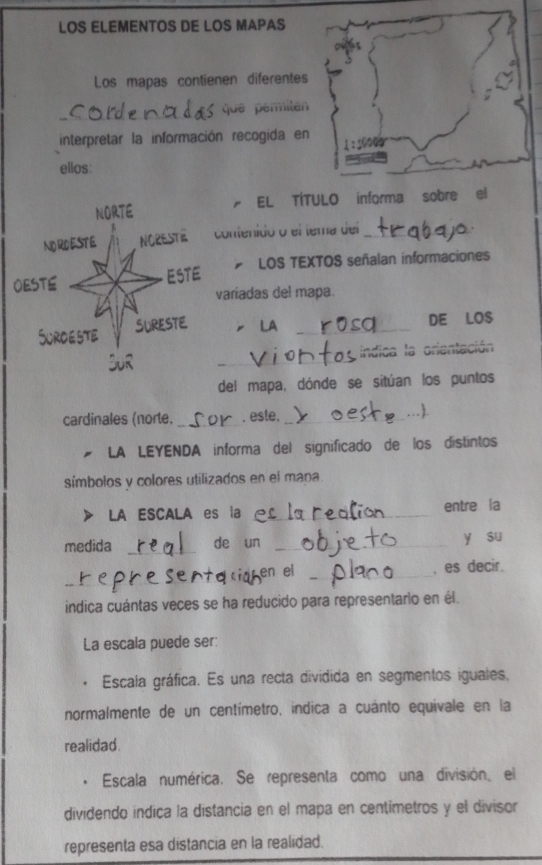 LOS ELEMENTOS DE LOS MAPAS
Los mapas contienen diferentes
cordenadas que permiten
interpretar la información recogida en
ellos:
1:50000
NORTE
NOROESTE
NORESTE
OESTE
ESTE
SUROESTE
SURESTE
SUR
➢ EL TÍTULO informa sobre el
contenido o el tema del trabajo.
➢ LOS TEXTOS señalan informaciones
variadas del mapa.
➢ LA rosa DE LOS
viontos indica la orientación
del mapa, dónde se sitúan los puntos
cardinales (norte, sor, este, y oeste ...).
➢ LA LEYENDA informa del significado de los distintos
símbolos y colores utilizados en el mapa.
➢ LA ESCALA es la es la realion entre la
medida real de un objeto y su
representación en el plano, es decir,
indica cuántas veces se ha reducido para representarlo en él.
La escala puede ser:
• Escala gráfica. Es una recta dividida en segmentos iguales,
normalmente de un centímetro, indica a cuánto equivale en la
realidad.
• Escala numérica. Se representa como una división, el
dividendo indica la distancia en el mapa en centímetros y el divisor
representa esa distancia en la realidad.